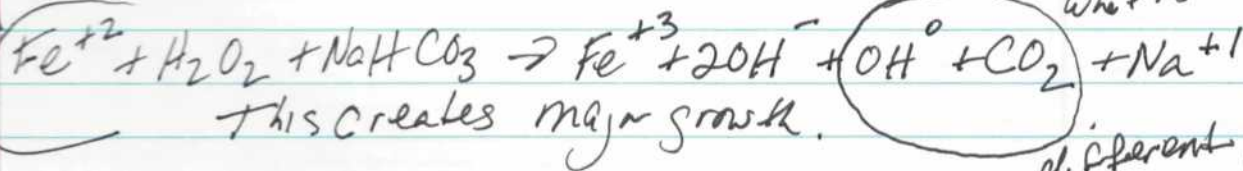 Fe⁺² + H₂O₂ + NaHCO₃ → Fe⁺³ + 2OH⁻ + OH° + CO₂ + Na⁺¹
This creates major growth.
different